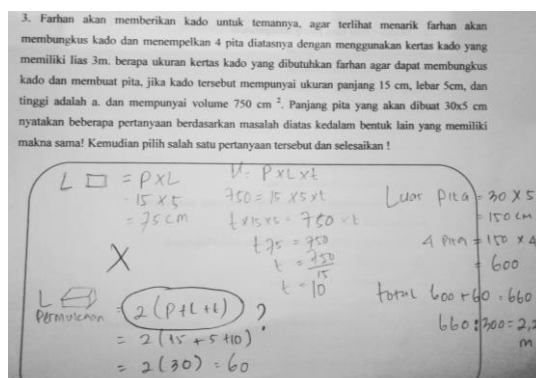 3. Farhan akan memberikan kado untuk temannya, agar terlihat menarik farhan akan
membungkus kado dan menempelkan 4 pita diatasnya dengan menggunakan kertas kado yang
memiliki lias 3m. berapa ukuran kertas kado yang dibutuhkan farhan agar dapat membungkus
kado dan membuat pita, jika kado tersebut mempunyai ukuran panjang 15 cm, lebar 5cm, dan
tinggi adalah a. dan mempunyai volume 750 cm ². Panjang pita yang akan dibuat 30x5 cm
nyatakan beberapa pertanyaan berdasarkan masalah diatas kedalam bentuk lain yang memiliki
makna sama! Kemudian pilih salah satu pertanyaan tersebut dan selesaikan !
L □ = P x L
15 x 5
= 75 cm
X
V = P x L x t
750 = 15 x 5 x t
t x 15 x 5 = 750
t 75 = 750
t = 750
15
t = 10
Luas Pita = 30 x 5
= 150 cm
4 Pita = 150 x 4
= 600
total 600 + 60 = 660
660 : 300 = 2,2
m
L
Permukaan = 2 (P + L + t) ?
= 2 (15 + 5 + 10)
= 2 (30) = 60